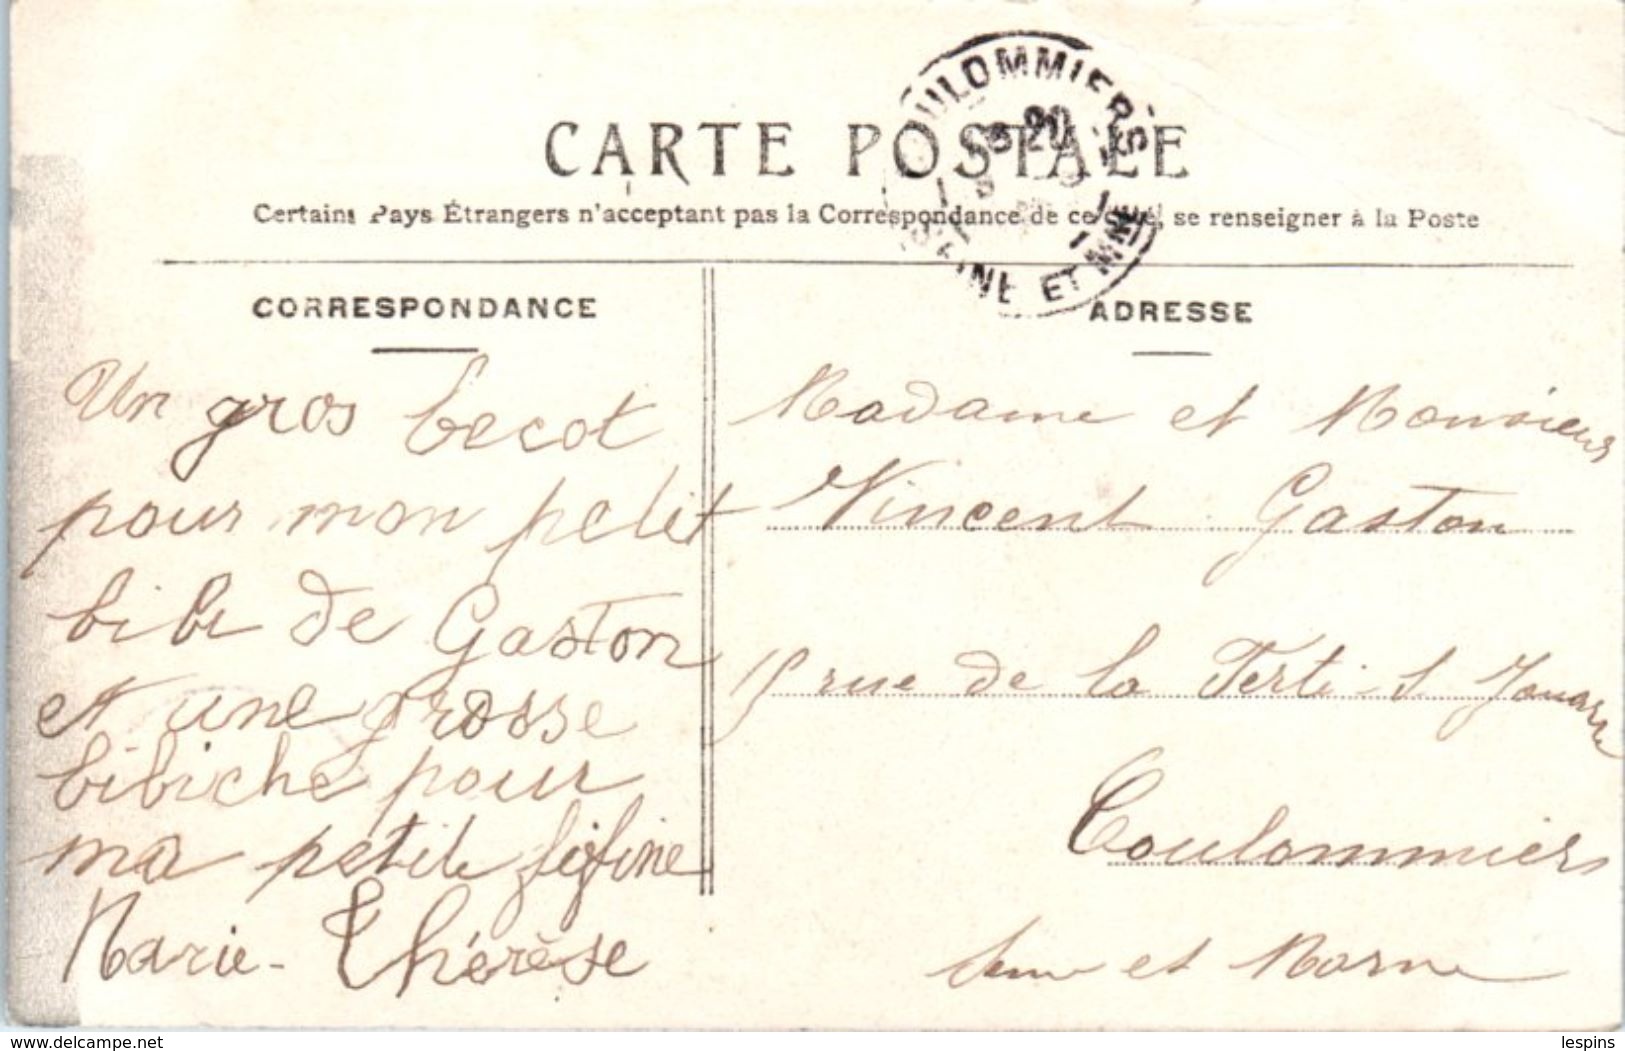 COULOMMIERS
SEINE ET MNE
CARTE POSTALE
Certains Pays Étrangers n'acceptant pas la Correspondance de ce côté, se renseigner à la Poste
CORRESPONDANCE
Un gros becot
pour mon petit
bibi de Gaston
et une grosse
bibiche pour
ma petite fifine
Marie-Thérèse
ADRESSE
Madame et Monsieur
Vincent Gaston
rue de la Ferti-s Jouarre
Coulommiers
Seine et Marne
www.delcampe.net
lespins